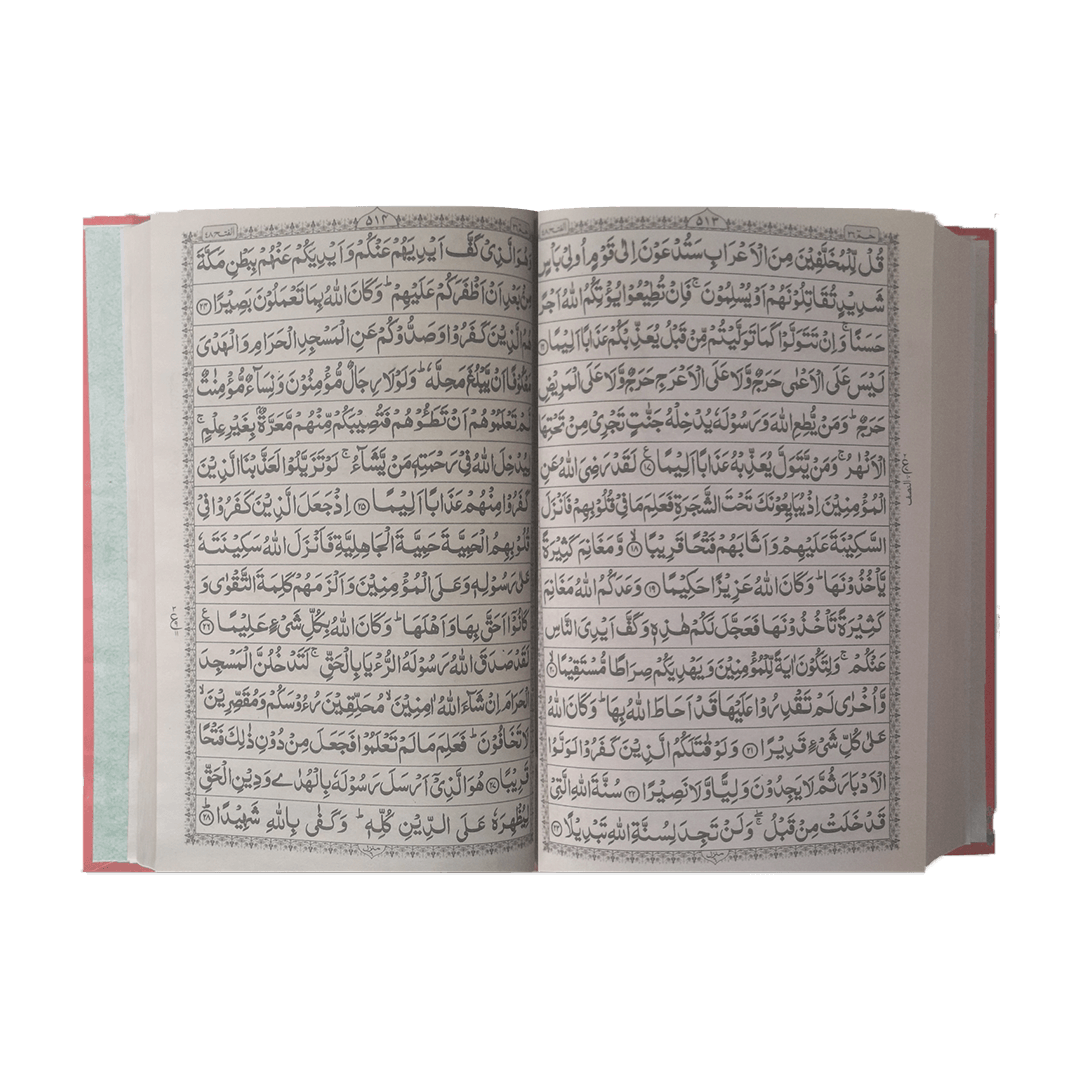 حٰمٓ ٢٦
٥١٣
الفتح ٤٨
قُلْ لِّلْمُخَلَّفِيْنَ مِنَ الْاَعْرَابِ سَتُدْعَوْنَ اِلٰى قَوْمٍ اُولِيْ بَاْسٍ
شَدِيْدٍ تُقَاتِلُوْنَهُمْ اَوْ يُسْلِمُوْنَ ۚ فَاِنْ تُطِيْعُوْا يُؤْتِكُمُ اللّٰهُ اَجْرًا
حَسَنًا ۚ وَاِنْ تَتَوَلَّوْا كَمَا تَوَلَّيْتُمْ مِّنْ قَبْلُ يُعَذِّبْكُمْ عَذَابًا اَلِيْمًا
لَيْسَ عَلَى الْاَعْمٰى حَرَجٌ وَّلَا عَلَى الْاَعْرَجِ حَرَجٌ وَّلَا عَلَى الْمَرِيْضِ
حَرَجٌ ؕ وَمَنْ يُّطِعِ اللّٰهَ وَرَسُوْلَهٗ يُدْخِلْهُ جَنّٰتٍ تَجْرِيْ مِنْ تَحْتِهَا
الْاَنْهٰرُ ۚ وَمَنْ يَّتَوَلَّ يُعَذِّبْهُ عَذَابًا اَلِيْمًا ۧ ﴿١٧﴾ لَقَدْ رَضِيَ اللّٰهُ عَنِ
الْمُؤْمِنِيْنَ اِذْ يُبَايِعُوْنَكَ تَحْتَ الشَّجَرَةِ فَعَلِمَ مَا فِيْ قُلُوْبِهِمْ فَاَنْزَلَ
السَّكِيْنَةَ عَلَيْهِمْ وَاَثَابَهُمْ فَتْحًا قَرِيْبًا ۙ ﴿١٨﴾ وَّمَغَانِمَ كَثِيْرَةً
يَّاْخُذُوْنَهَا ؕ وَكَانَ اللّٰهُ عَزِيْزًا حَكِيْمًا ﴿١٩﴾ وَعَدَكُمُ اللّٰهُ مَغَانِمَ
كَثِيْرَةً تَاْخُذُوْنَهَا فَعَجَّلَ لَكُمْ هٰذِهٖ وَكَفَّ اَيْدِيَ النَّاسِ
عَنْكُمْ ۚ وَلِتَكُوْنَ اٰيَةً لِّلْمُؤْمِنِيْنَ وَيَهْدِيَكُمْ صِرَاطًا مُّسْتَقِيْمًا ۙ ﴿٢٠﴾
وَّاُخْرٰى لَمْ تَقْدِرُوْا عَلَيْهَا قَدْ اَحَاطَ اللّٰهُ بِهَا ؕ وَكَانَ اللّٰهُ
عَلٰى كُلِّ شَيْءٍ قَدِيْرًا ﴿٢١﴾ وَلَوْ قٰتَلَكُمُ الَّذِيْنَ كَفَرُوْا لَوَلَّوُا
الْاَدْبَارَ ثُمَّ لَا يَجِدُوْنَ وَلِيًّا وَّلَا نَصِيْرًا ﴿٢٢﴾ سُنَّةَ اللّٰهِ الَّتِيْ
قَدْ خَلَتْ مِنْ قَبْلُ ۖ وَلَنْ تَجِدَ لِسُنَّةِ اللّٰهِ تَبْدِيْلًا ﴿٢٣﴾
٥١٤
الفتح ٤٨
وَهُوَ الَّذِيْ كَفَّ اَيْدِيَهُمْ عَنْكُمْ وَاَيْدِيَكُمْ عَنْهُمْ بِبَطْنِ مَكَّةَ
مِنْۢ بَعْدِ اَنْ اَظْفَرَكُمْ عَلَيْهِمْ ؕ وَكَانَ اللّٰهُ بِمَا تَعْمَلُوْنَ بَصِيْرًا ﴿٢٤﴾
هُمُ الَّذِيْنَ كَفَرُوْا وَصَدُّوْكُمْ عَنِ الْمَسْجِدِ الْحَرَامِ وَالْهَدْيَ
مَعْكُوْفًا اَنْ يَّبْلُغَ مَحِلَّهٗ ؕ وَلَوْلَا رِجَالٌ مُّؤْمِنُوْنَ وَنِسَآءٌ مُّؤْمِنٰتٌ
لَّمْ تَعْلَمُوْهُمْ اَنْ تَطَـُٔوْهُمْ فَتُصِيْبَكُمْ مِّنْهُمْ مَّعَرَّةٌۢ بِغَيْرِ عِلْمٍ ۚ
لِيُدْخِلَ اللّٰهُ فِيْ رَحْمَتِهٖ مَنْ يَّشَآءُ ۚ لَوْ تَزَيَّلُوْا لَعَذَّبْنَا الَّذِيْنَ
كَفَرُوْا مِنْهُمْ عَذَابًا اَلِيْمًا ﴿٢٥﴾ اِذْ جَعَلَ الَّذِيْنَ كَفَرُوْا فِيْ
قُلُوْبِهِمُ الْحَمِيَّةَ حَمِيَّةَ الْجَاهِلِيَّةِ فَاَنْزَلَ اللّٰهُ سَكِيْنَتَهٗ
عَلٰى رَسُوْلِهٖ وَعَلَى الْمُؤْمِنِيْنَ وَاَلْزَمَهُمْ كَلِمَةَ التَّقْوٰى وَ
كَانُوْٓا اَحَقَّ بِهَا وَاَهْلَهَا ؕ وَكَانَ اللّٰهُ بِكُلِّ شَيْءٍ عَلِيْمًا ۧ ﴿٢٦﴾
لَقَدْ صَدَقَ اللّٰهُ رَسُوْلَهُ الرُّءْيَا بِالْحَقِّ ۚ لَتَدْخُلُنَّ الْمَسْجِدَ
الْحَرَامَ اِنْ شَآءَ اللّٰهُ اٰمِنِيْنَ ۙ مُحَلِّقِيْنَ رُءُوْسَكُمْ وَمُقَصِّرِيْنَ ۙ
لَا تَخَافُوْنَ ؕ فَعَلِمَ مَا لَمْ تَعْلَمُوْا فَجَعَلَ مِنْ دُوْنِ ذٰلِكَ فَتْحًا
قَرِيْبًا ﴿٢٧﴾ هُوَ الَّذِيْٓ اَرْسَلَ رَسُوْلَهٗ بِالْهُدٰى وَدِيْنِ الْحَقِّ
لِيُظْهِرَهٗ عَلَى الدِّيْنِ كُلِّهٖ ؕ وَكَفٰى بِاللّٰهِ شَهِيْدًا ؕ ﴿٢٨﴾